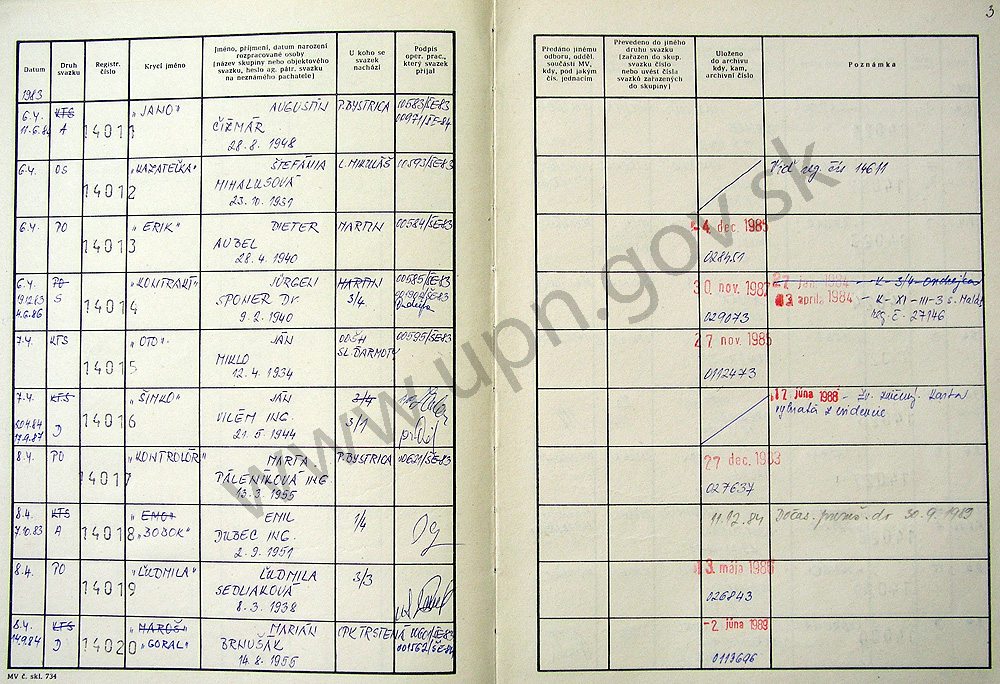 3
Datum
Druh svazku
Registr. číslo
Krycí jméno
Jméno, příjmení, datum narození rozpracované osoby (název skupiny nebo objektového svazku, heslo ag. pátr. svazku na neznámého pachatele)
U koho se svazek nachází
Podpis oper. prac., který svazek přijal
Předáno jinému odboru, odděl. součásti MV, kdy, pod jakým čís. jednacím
Převedeno do jiného druhu svazku (zařazen do skup. svazku číslo nebo uvést čísla svazků zařazených do skupiny)
Uloženo do archivu kdy, kam, archivní číslo
Poznámka
1983
6.4. KTS 14011 „JANO“ AUGUSTÍN P. BYSTRICA 00583/ŠE-83
11.6.84 A ČIŽMÁR 00971/ŠE-84
28. 8. 1948
6.4. OS 14012 „KAZATEĽKA“ ŠTEFÁNIA L. MIKULÁŠ 00593/ŠE-83 Viď reg. čís 14611
MIHALUSOVÁ
23. 10. 1931
6.4. PO 14013 „ERIK“ DIETER MARTIN 00584/ŠE-83 -4. dec. 1985
AUBEL 028451
28. 4. 1940
6.4. PO 14014 „KONTRAKT“ JÜRGEN MARTIN 00585/ŠE-83 30. nov. 1987 27. jan. 1984 - K - 3/4 - Ondrejka
19.12.83 S SPONER Dr. 3/4. 13. apríla 1984 - K - XI - III - 3 s. Malát
4.6.86 9. 2. 1940 029073 reg. č. - 27146
7.4. KTS 14015 „OTO“ JÁN OOŠH 00595/ŠE-83 27. nov. 1985
MIKLO SL. ĎARMOTY
12. 4. 1934 0112473
7.4. KTS 14016 „ŠIMKO“ JÁN 3/4 17. júna 1988 - Zv. zničený. Karta
D VILÉM ING. 3/1 vybratá z evidencie
17.9.87 21. 5. 1944
8.4. PO 14017 „KONTROLÓR“ MARTA P. BYSTRICA 00621/ŠE-83 27. dec. 1983
PÁLENÍKOVÁ ING 027637
13. 3. 1955
8.4. KTS 14018 „EMO“ EMIL 1/4 11.12.84 Dočas. do 30. 9. 1989
7.10.83 A „BOBOK“ DUBEC ING.
2. 9. 1951
8.4. PO 14019 „ĽUDMILA“ ĽUDMILA 3/3 13. mája 1985
SEDLIAKOVÁ 026843
8. 3. 1938
8.4. KTS 14020 „MAROŠ“ MARIÁN OPK TRSTENÁ 00601/ŠE-83 -2. júna 1989
14.9.84 D „GORAL“ BRNUŠÁK 001562/ŠE-84
14. 8. 1955 0113696
MV č. skl. 734
www.upn.gov.sk